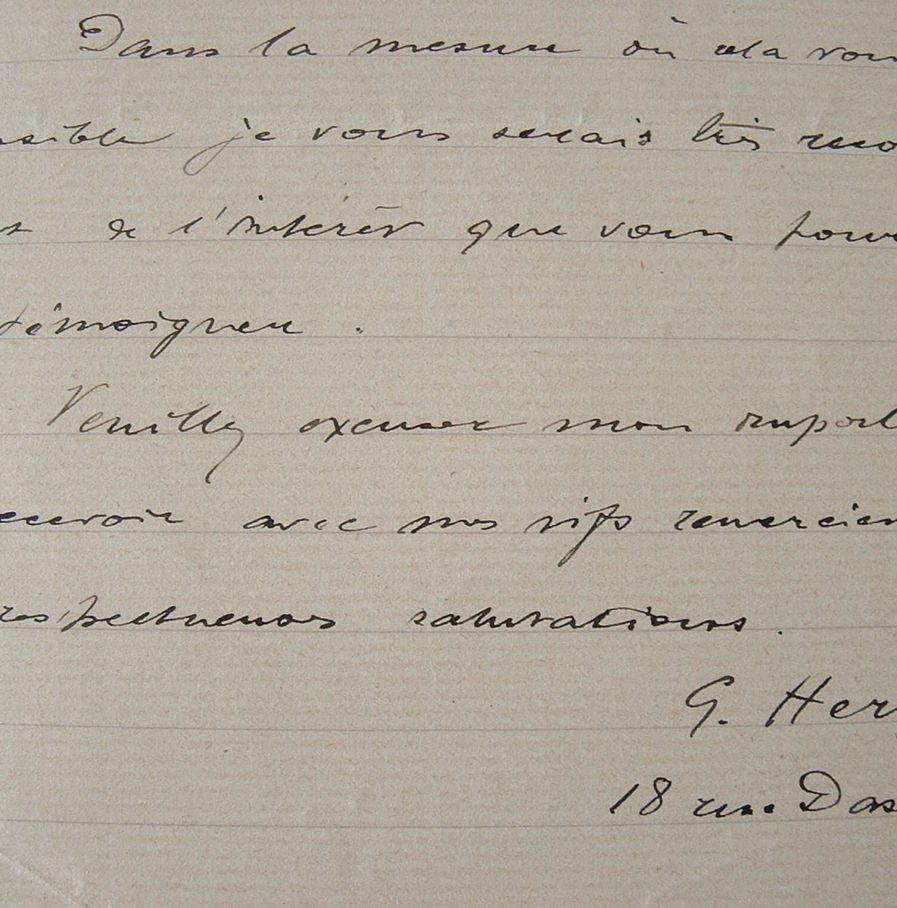 Dans la mesure où cela vou
ssible je vous serais très reco
t de l'intérêt que vous pouv
témoigner.
Veuillez excuser mon import
ecevoir avec mes vifs remerciem
respectueuses salutations.
G. Her
18 rue Das